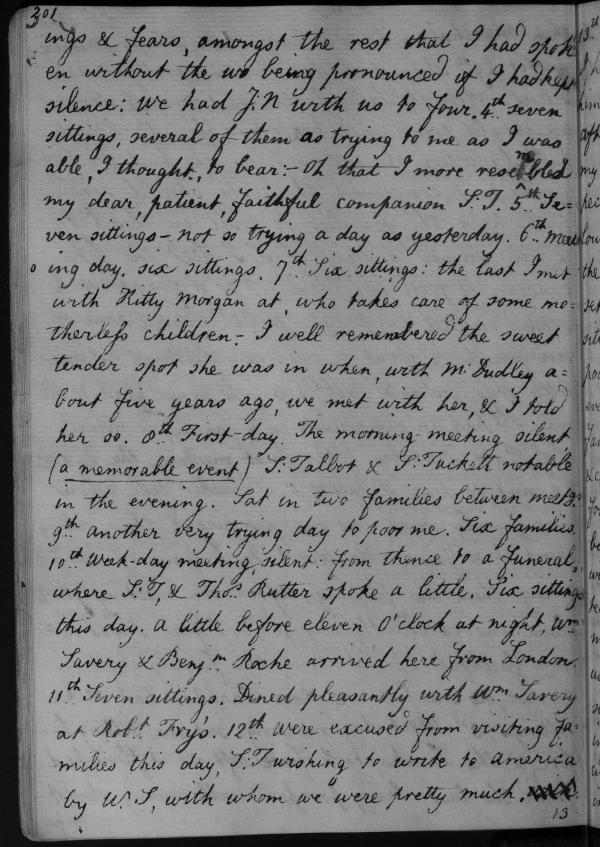 201
ings & fears, amongst the rest that I had spok
en without the wo being pronounced if I had kept
silence: we had J:N with us to four. 4th seven
sittings, several of them as trying to me as I was
able, I thought, to bear:- Oh that I more resembled
my dear, patient, faithful companion S.T. 5th Se=
ven sittings - not so trying a day as yesterday. 6th Meet
ing day. six sittings. 7th Six sittings: the last I met
with Kitty Morgan at, who takes care of some mo=
therless children - I well remembered the sweet
tender spot she was in when, with M: Dudley a=
bout five years ago, we met with her, & I told
her so. 8th First-day. The morning meeting silent
(a memorable event) S: Talbot & S: Tuckett notable
in the evening. Sat in two families between meetgs.
9th another very trying day to poor me. Six families.
10th Week-day meeting silent: from thence to a funeral,
where S:T, & Thos. Rutter spoke a little. Six sittings
this day. a little before eleven O'clock at night, Wm
Savery & Benjm Roche arrived here from London.
11th Seven sittings. Dined pleasantly with Wm Savery
at Robt Fry's. 12th were excused from visiting fa=
milies this day, S:T wishing to write to America
by W:S, with whom we were pretty much.
13